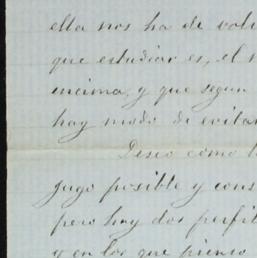 ella nos ha de volv
que estudiar es, el
incima, y que segun
hay modo de evitar
Deseo como t
jugo posible y cons
pero hay dos perfi
y en los que pienso